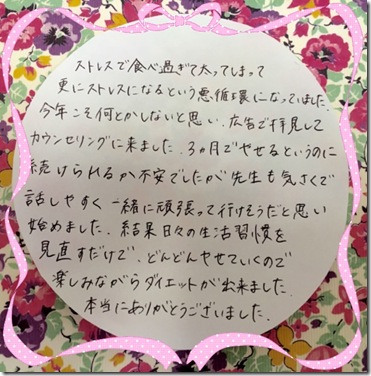 ストレスで食べ過ぎて太ってしまって
更にストレスになるという悪循環になっていました.
今年こそ何とかしないと思い、広告で拝見して
カウンセリングに来ました. 3ヵ月でやせるというのに
続けられるか不安でしたが先生も気さくで
話しやすく一緒に頑張って行けそうだと思い
始めました. 結果日々の生活習慣を
見直すだけで、どんどんやせていくので
楽しみながらダイエットが出来ました.
本当にありがとうございました.